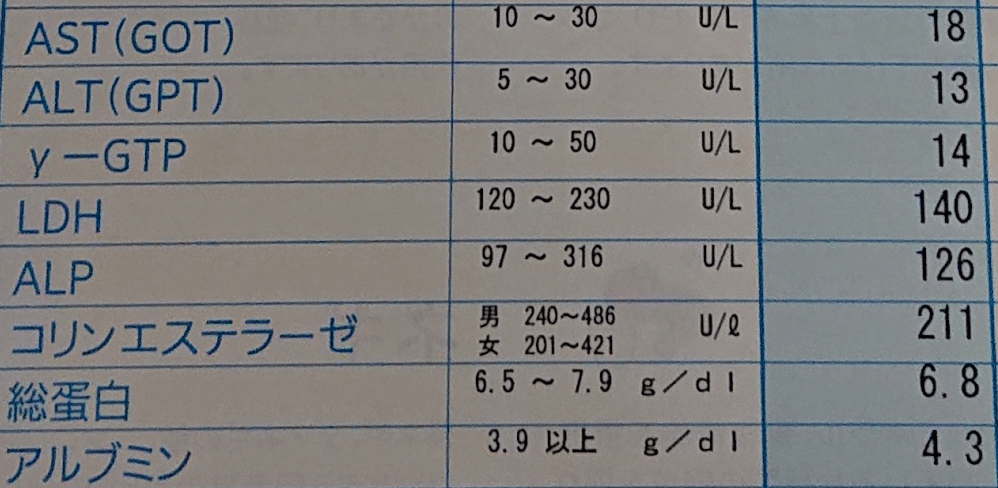 AST(GOT) 10 ～ 30 U/L 18
ALT(GPT) 5 ～ 30 U/L 13
γーGTP 10 ～ 50 U/L 14
LDH 120 ～ 230 U/L 140
ALP 97 ～ 316 U/L 126
コリンエステラーゼ 男 240～486 U/ℓ 211
女 201～421
総蛋白 6.5 ～ 7.9 g／dl 6.8
アルブミン 3.9 以上 g／dl 4.3